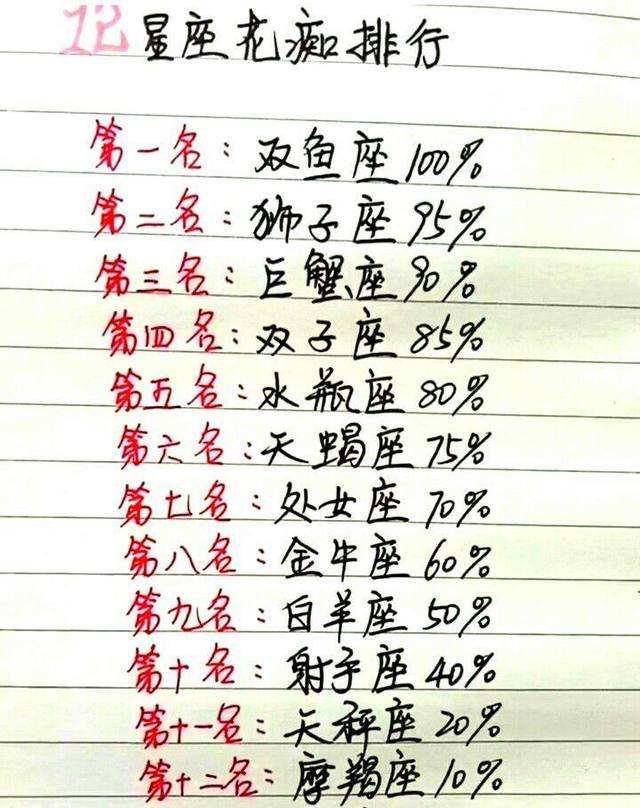 12星座花痴排行
第一名：双鱼座100%
第二名：狮子座95%
第三名：巨蟹座90%
第四名：双子座85%
第五名：水瓶座80%
第六名：天蝎座75%
第七名：处女座70%
第八名：金牛座60%
第九名：白羊座50%
第十名：射手座40%
第十一名：天秤座20%
第十二名：摩羯座10%